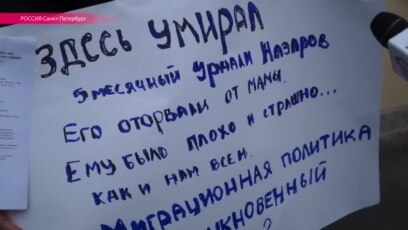 РОССИЯ Санкт-Петербург
ЗДЕСЬ УМИРАЛ
5 МЕСЯЧНЫЙ УМАЛИ НАЗАРОВ
ЕГО ОТОРВАЛИ ОТ МАМЫ.
ЕМУ БЫЛО ПЛОХО И СТРАШНО...
КАК И НАМ ВСЕМ.
МИГРАЦИОННАЯ ПОЛИТИКА
?